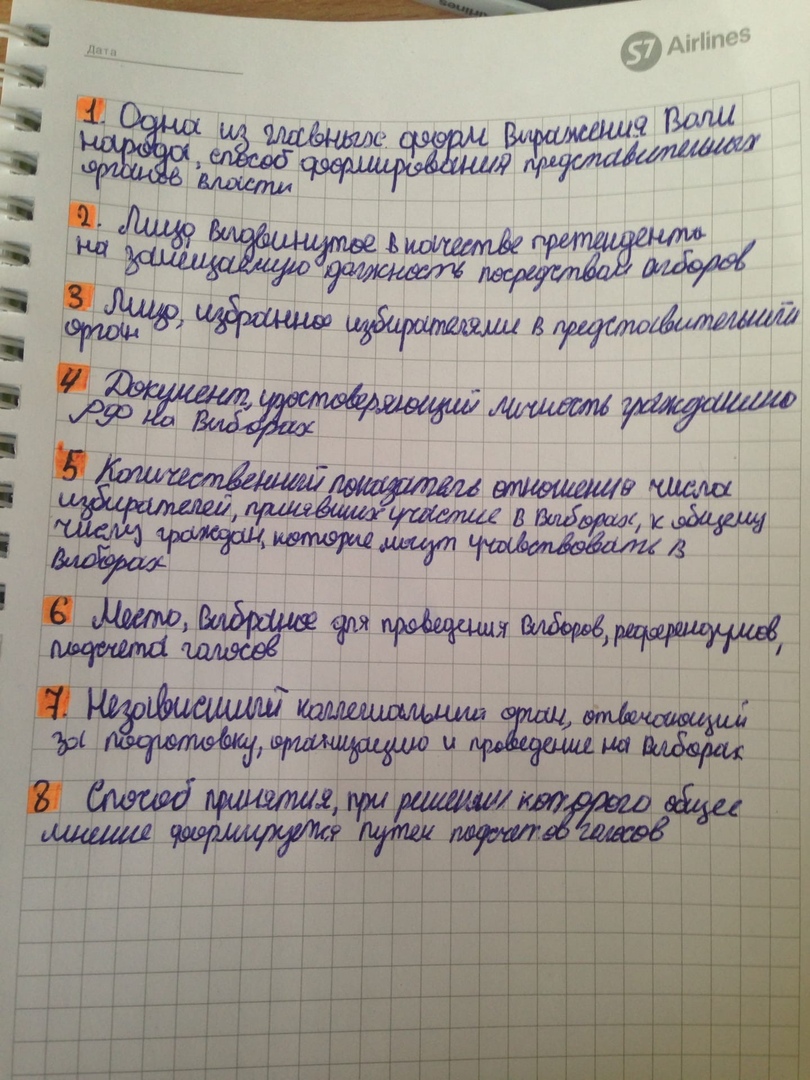 Дата
S7 Airlines
1. Одна из главных форм Выражения Воли
народа, способ формирования представительных
органов власти
2. Лицо Выдвинутое в качестве претендента
на замещаемую должность посредствам выборов
3 Лицо, избранное избирателями в представительный
орган
4 Документ, удостоверяющий личность гражданина
РФ на Выборах
5 Количественный показатель отношения числа
избирателей, принявших участие в Выборах, к общему
числу граждан, которые могут учавствовать в
Выборах
6 Место, Выбраное для проведения Выборов, референдумов,
подсчета голосов
7. Независимый коллегиальный орган, отвечающий
за подготовку, организацию и проведение на Выборах
8 Способ принятия, при решении которого общее
мнение формируется путем подсчетов голосов